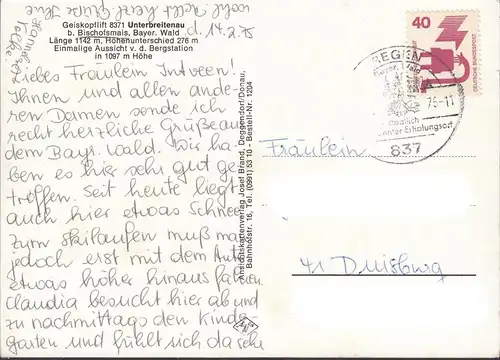 Geiskopflift 8371 Unterbreitenau
b. Bischofsmais, Bayer. Wald
Länge 1142 m, Höhenunterschied 276 m
Einmalige Aussicht v. d. Bergstation
in 1097 m Höhe
d. 14.2.75
Liebes Fräulein Intveen!
Ihnen und allen ande-
ren Damen sende ich
recht herzliche Grüße aus
dem Bayr. Wald. Wir ha-
ben es hier sehr gut ge-
troffen. Seit heute liegt
auch hier etwas Schnee
Zum skilaufen muß man
jedoch erst mit dem Auto
etwas höher hinaus fahren.
Claudia besucht hier ab und
zu nachmittags den Kinder-
garten und fühlt sich da sehr
wohl
Herzl. Grüße Ihre
Hanne
Ansichtskartenverlag Josef Brandl, Deggendorf/Donau,
Bahnhofstr. 16, Tel. (0991) 53 10 - Bestell-Nr. 1204
40
DEUTSCHE BUNDESPOST
REGEN
75-11
staatlich
anerkannter Erholungsort
837
Fräulein
41 Duisburg